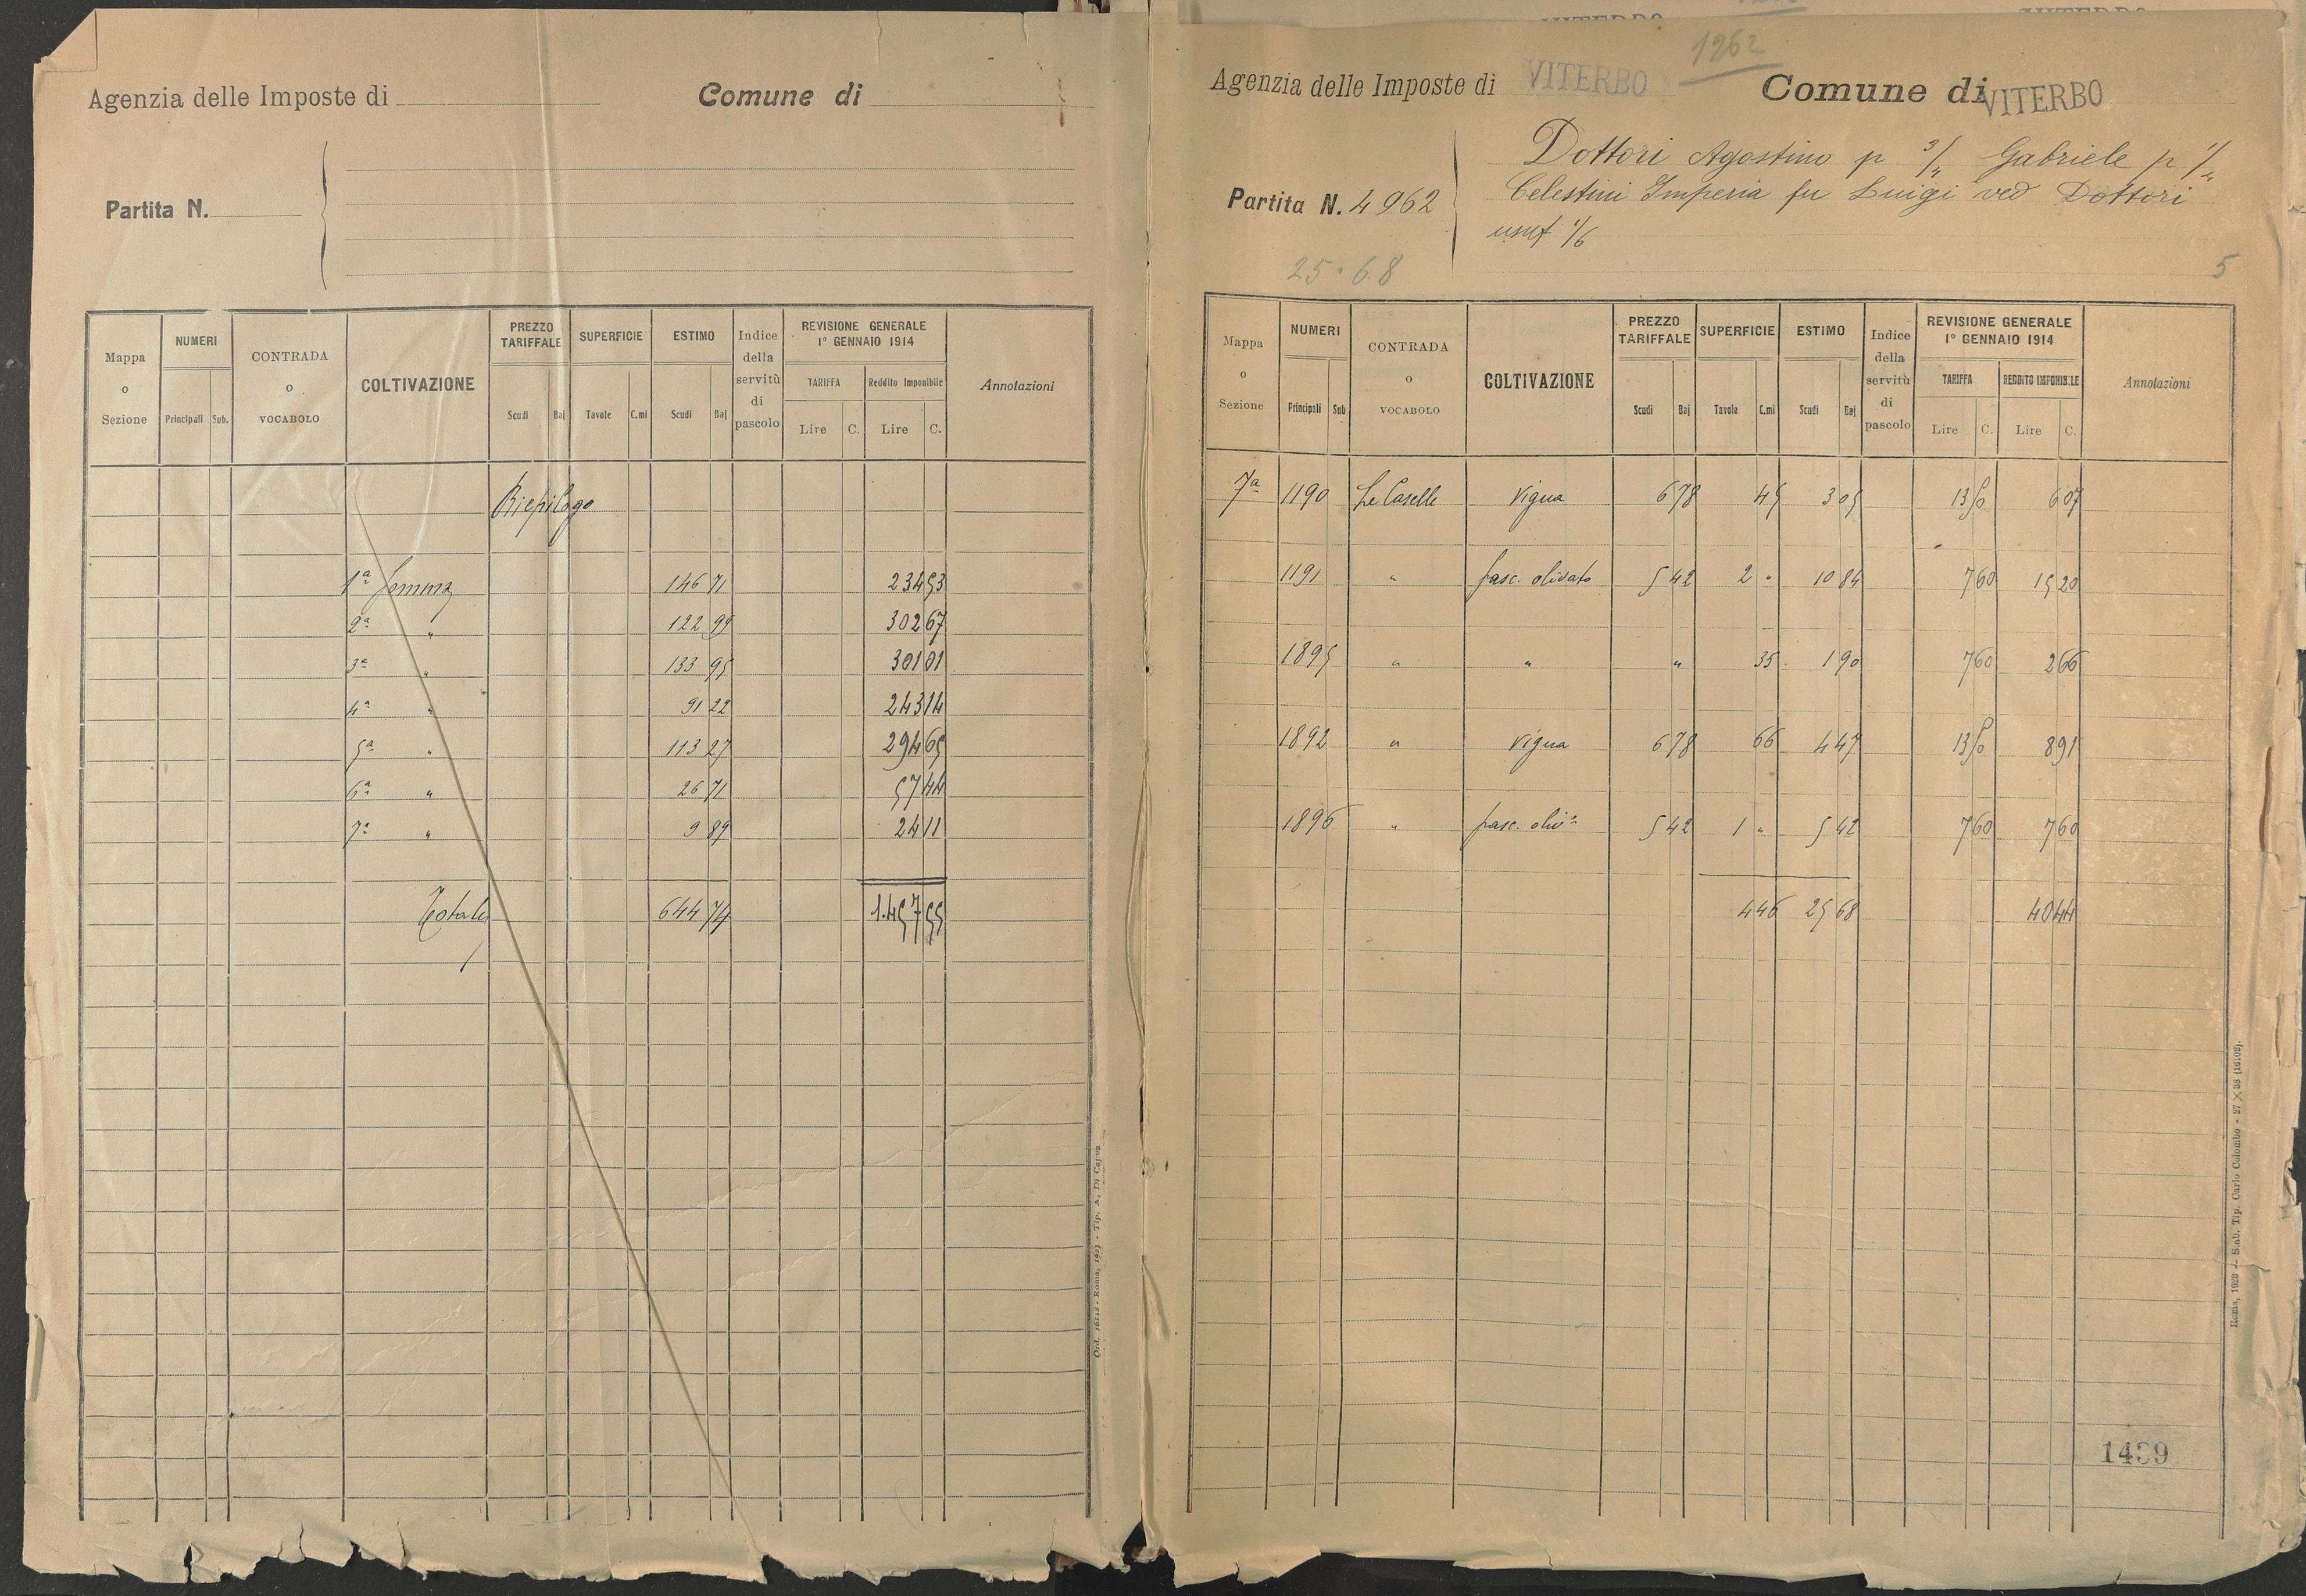 Agenzia delle Imposte di
Comune di
Partita N.
Mappa o Sezione
NUMERI
Principali Sub.
CONTRADA o VOCABOLO
COLTIVAZIONE
PREZZO TARIFFALE
Scudi Baj
SUPERFICIE
Tavole C.mi
ESTIMO
Scudi Baj
Indice della servitù di pascolo
REVISIONE GENERALE
1° GENNAIO 1914
TARIFFA
Lire C.
Reddito Imponibile
Lire C.
Annotazioni
Riepilogo
1ª Somma 146 71 234 53
2ª " 122 99 302 67
3ª " 133 95 301 01
4ª " 91 22 243 14
5ª " 113 27 294 65
6ª " 26 71 57 44
7ª " 9 89 24 11
Totale 644 74 1.457 55
Ord. 16213 - Roma, 1923 - Tip. A. Di Capua
1962
Agenzia delle Imposte di VITERBO
Comune di VITERBO
Partita N. 4962
Dottori Agostino p 3/4 Gabriele p 1/4
Celestini Imperia fu Luigi ved Dottori
usuf 1/6
25.68
5
Mappa o Sezione
NUMERI
Principali Sub
CONTRADA o VOCABOLO
COLTIVAZIONE
PREZZO TARIFFALE
Scudi Baj
SUPERFICIE
Tavole C.mi
ESTIMO
Scudi Baj
Indice della servitù di pascolo
REVISIONE GENERALE
1° GENNAIO 1914
TARIFFA
Lire C.
REDDITO IMPONIBILE
Lire C.
Annotazioni
7ª 1190 Le Caselle Vigna 6 78 45 3 05 13 50 6 07
1191 " pasc. olivato 5 42 2 " 10 84 7 60 15 20
1895 " " " 35 1 90 7 60 2 66
1892 " Vigna 6 78 66 4 47 13 50 8 91
1896 " pasc. olivº 5 42 1 " 5 42 7 60 7 60
4 46 25 68 40 44
Roma, 1928 - Stab. Tip. Carlo Colombo - 27 × 38 (16108).
1439